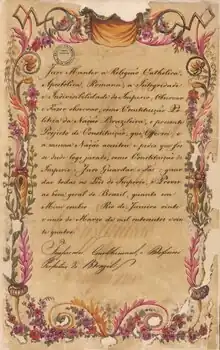 Juro Manter a Religião Catholica,
Apostolica, Romana; a Integridade
e Indivisibilidade do Imperio, Observar
e Fazer observar, como Constituição Po
litica da Nação Brazileira, o presente
Projecto de Constituição, que Offereci, e
a mesma Nação acceitou, e pedio que fos
se desde logo jurado, como Constituição do
Imperio. Juro Guardar, e Fazer guar
dar todas as Leis do Imperio, e Prover
ao bem geral do Brazil, quanto em
Mim couber. Rio de Janeiro vinte
e cinco de Março de mil oitocentos vin
te quatro.
Imperador Constitucional, e Defensor
Perpetuo do Brazil